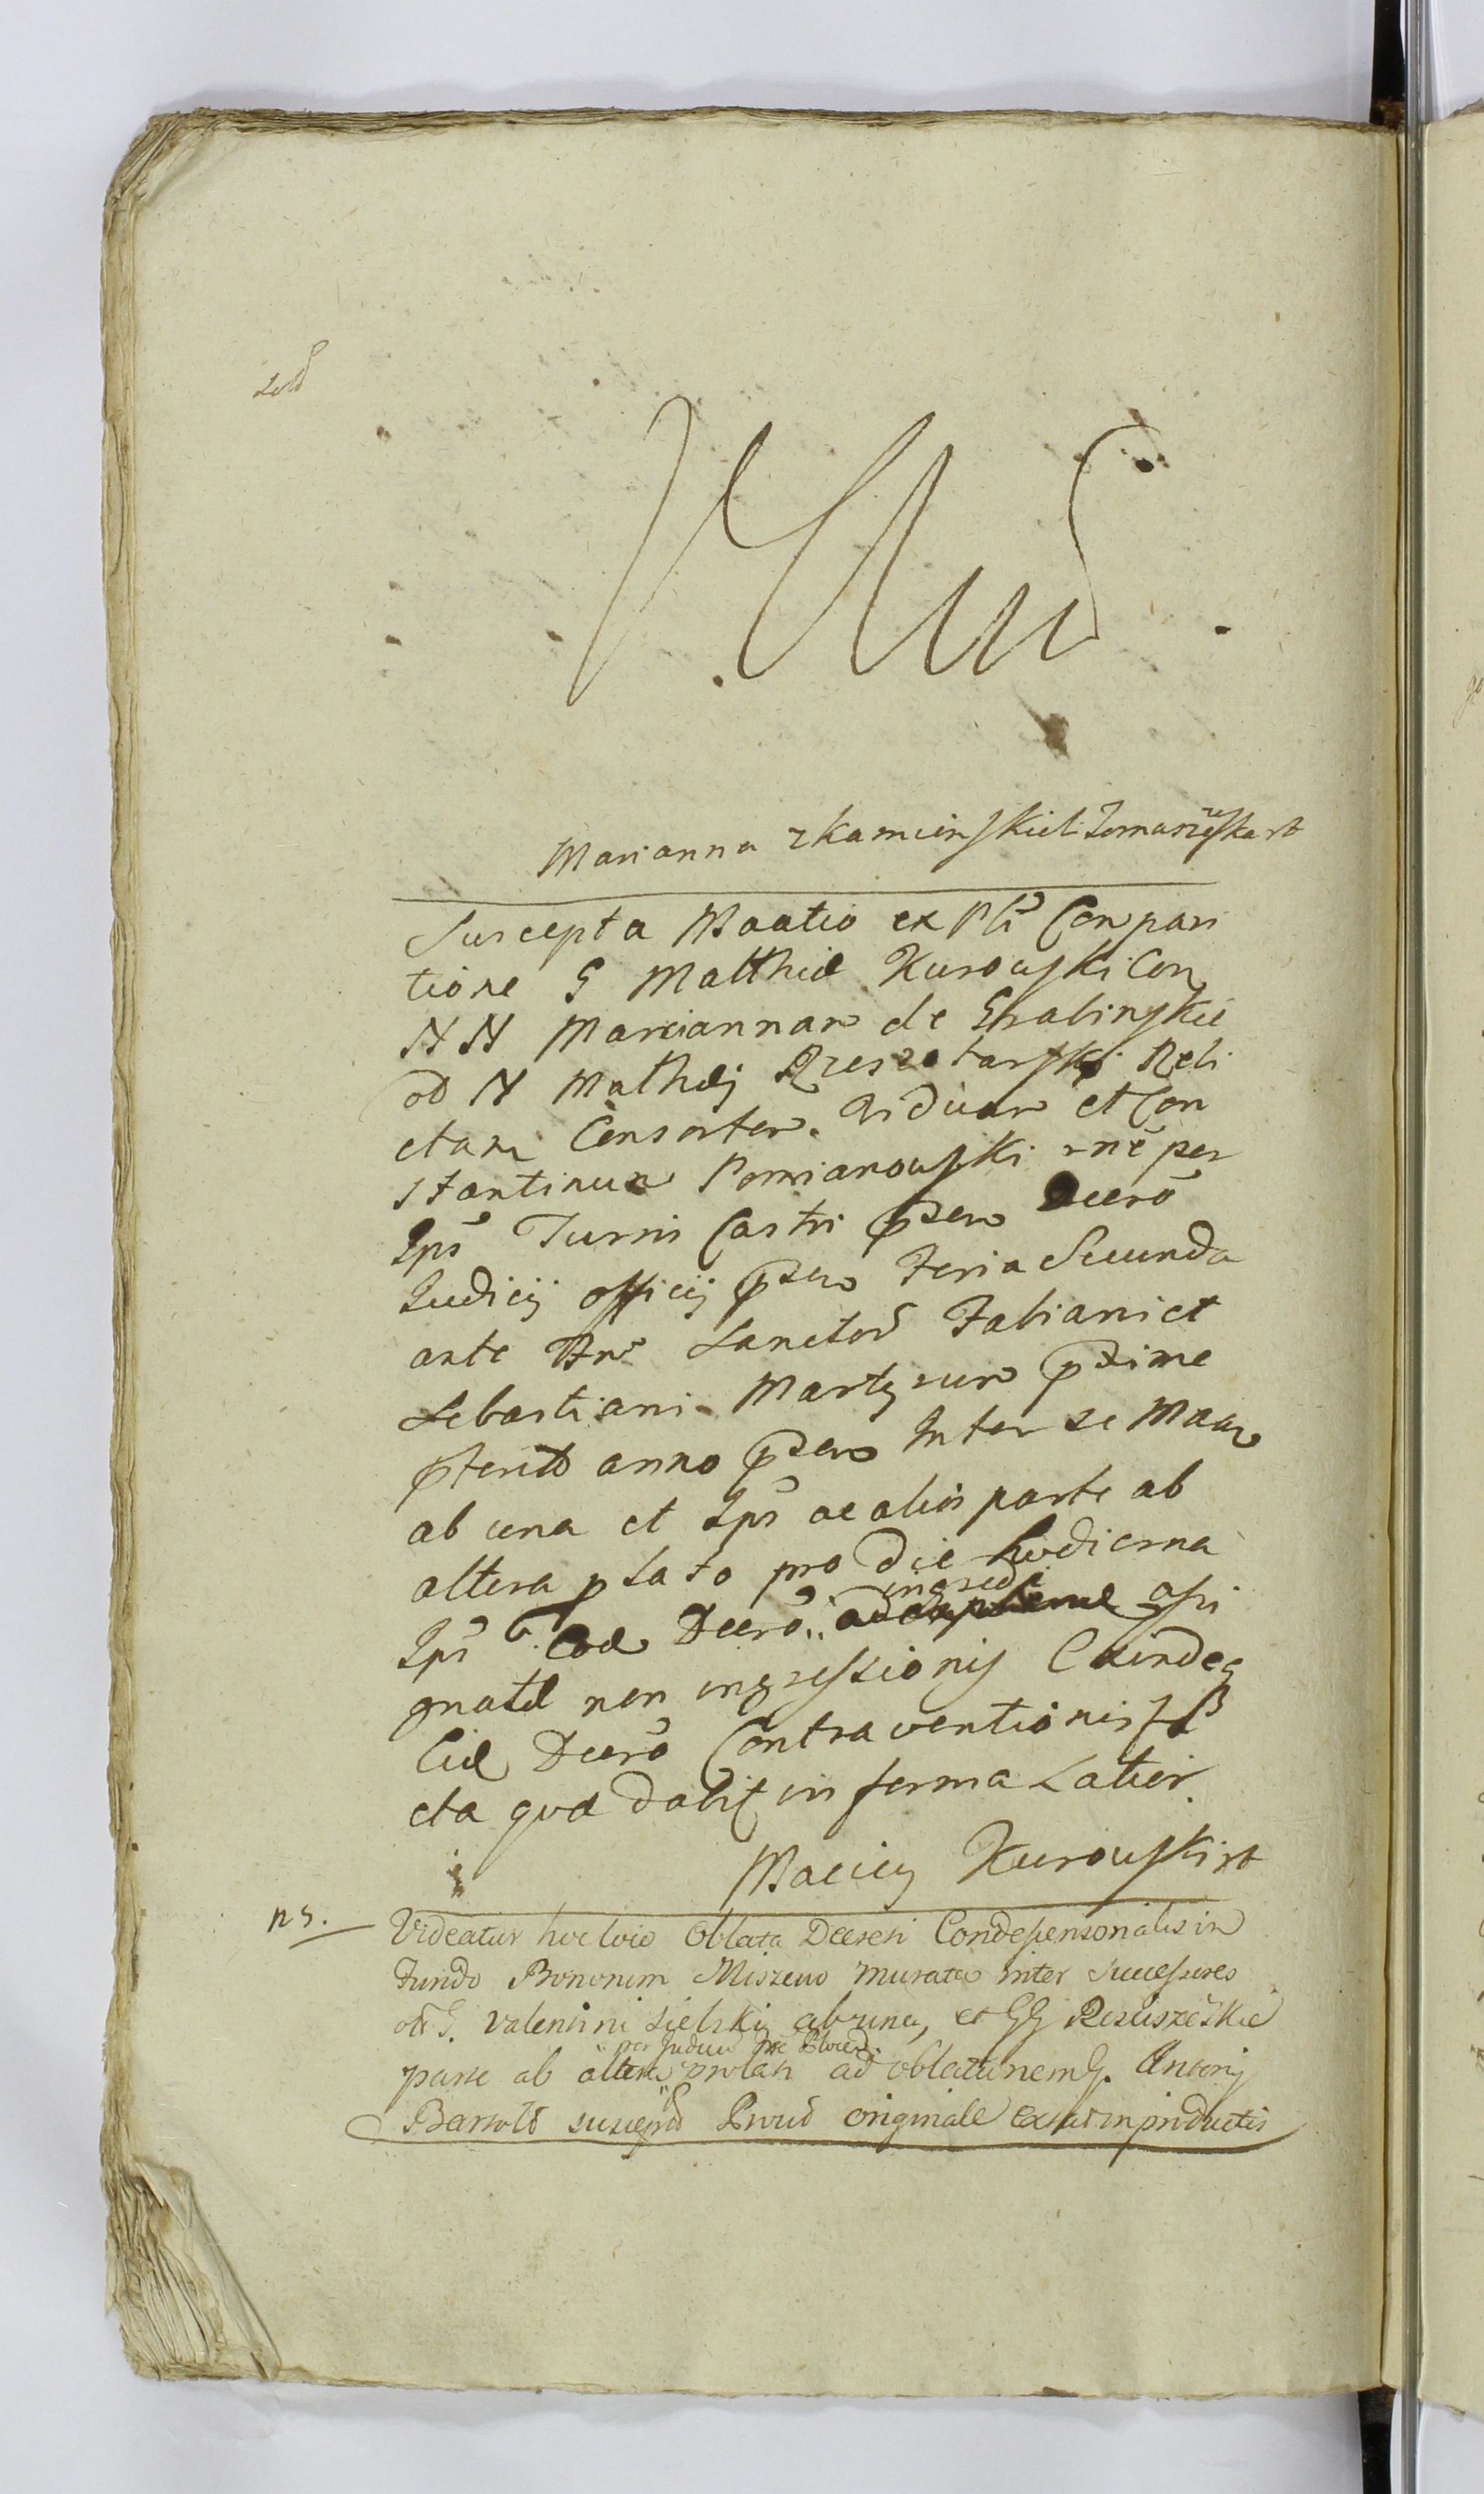 Marianna z kamienskich Tomaszewska rt
Suscepta Maatio ex Pti Conpari
tione G Matthiæ Kurowski Con
NN Mariannam de Grabinskie
od N Mathej Rzeszotarski Reli
ctam Consortem Viduam et Con
stantinum Pomianowski rne per
Ips Turris Castri psen Decro
Judicij officij psen Feria Secunda
ante Fns Sanctor Fabiani et
Sebastiani Martyrum pxime
pterito anno psen Inter se Maar
ab una et Ips ac alios parte ab
altera p Lato pro die hodierna
ingredi
Ips Eod Decro assi
gnatæ non ingressionis Eaindeq
Eid Decro Contraventionis
cta quæ dabit in forma Latior.
Maciey Kurowski rt
ns.
Videatur hocloco Oblata Decreti Condespensonalis in
Fundo Bononim Miszewo murata inter Successores
od G. Valentini Sielski ab una, et GG Resziszeskie
per Judicium
parte ab altera prolati ad oblatunem G. Antonij
Bartold suscepta originale extat in productis